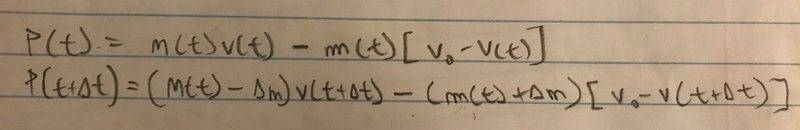 P(t) = m(t)v(t) - m(t)[v₀-v(t)]
P(t+Δt) = (M(t) - Δm)v(t+Δt) - (m(t)+Δm)[v₀-v(t+Δt)]